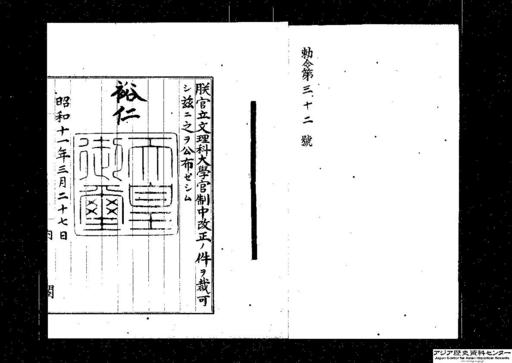 勅令第三十二號
朕官立文理科大學官制中改正ノ件ヲ裁可
シ茲ニ之ヲ公布セシム
裕仁
天皇御璽
昭和十一年三月二十七日
内閣
アジア歴史資料センター
Japan Center for Asian Historical Records